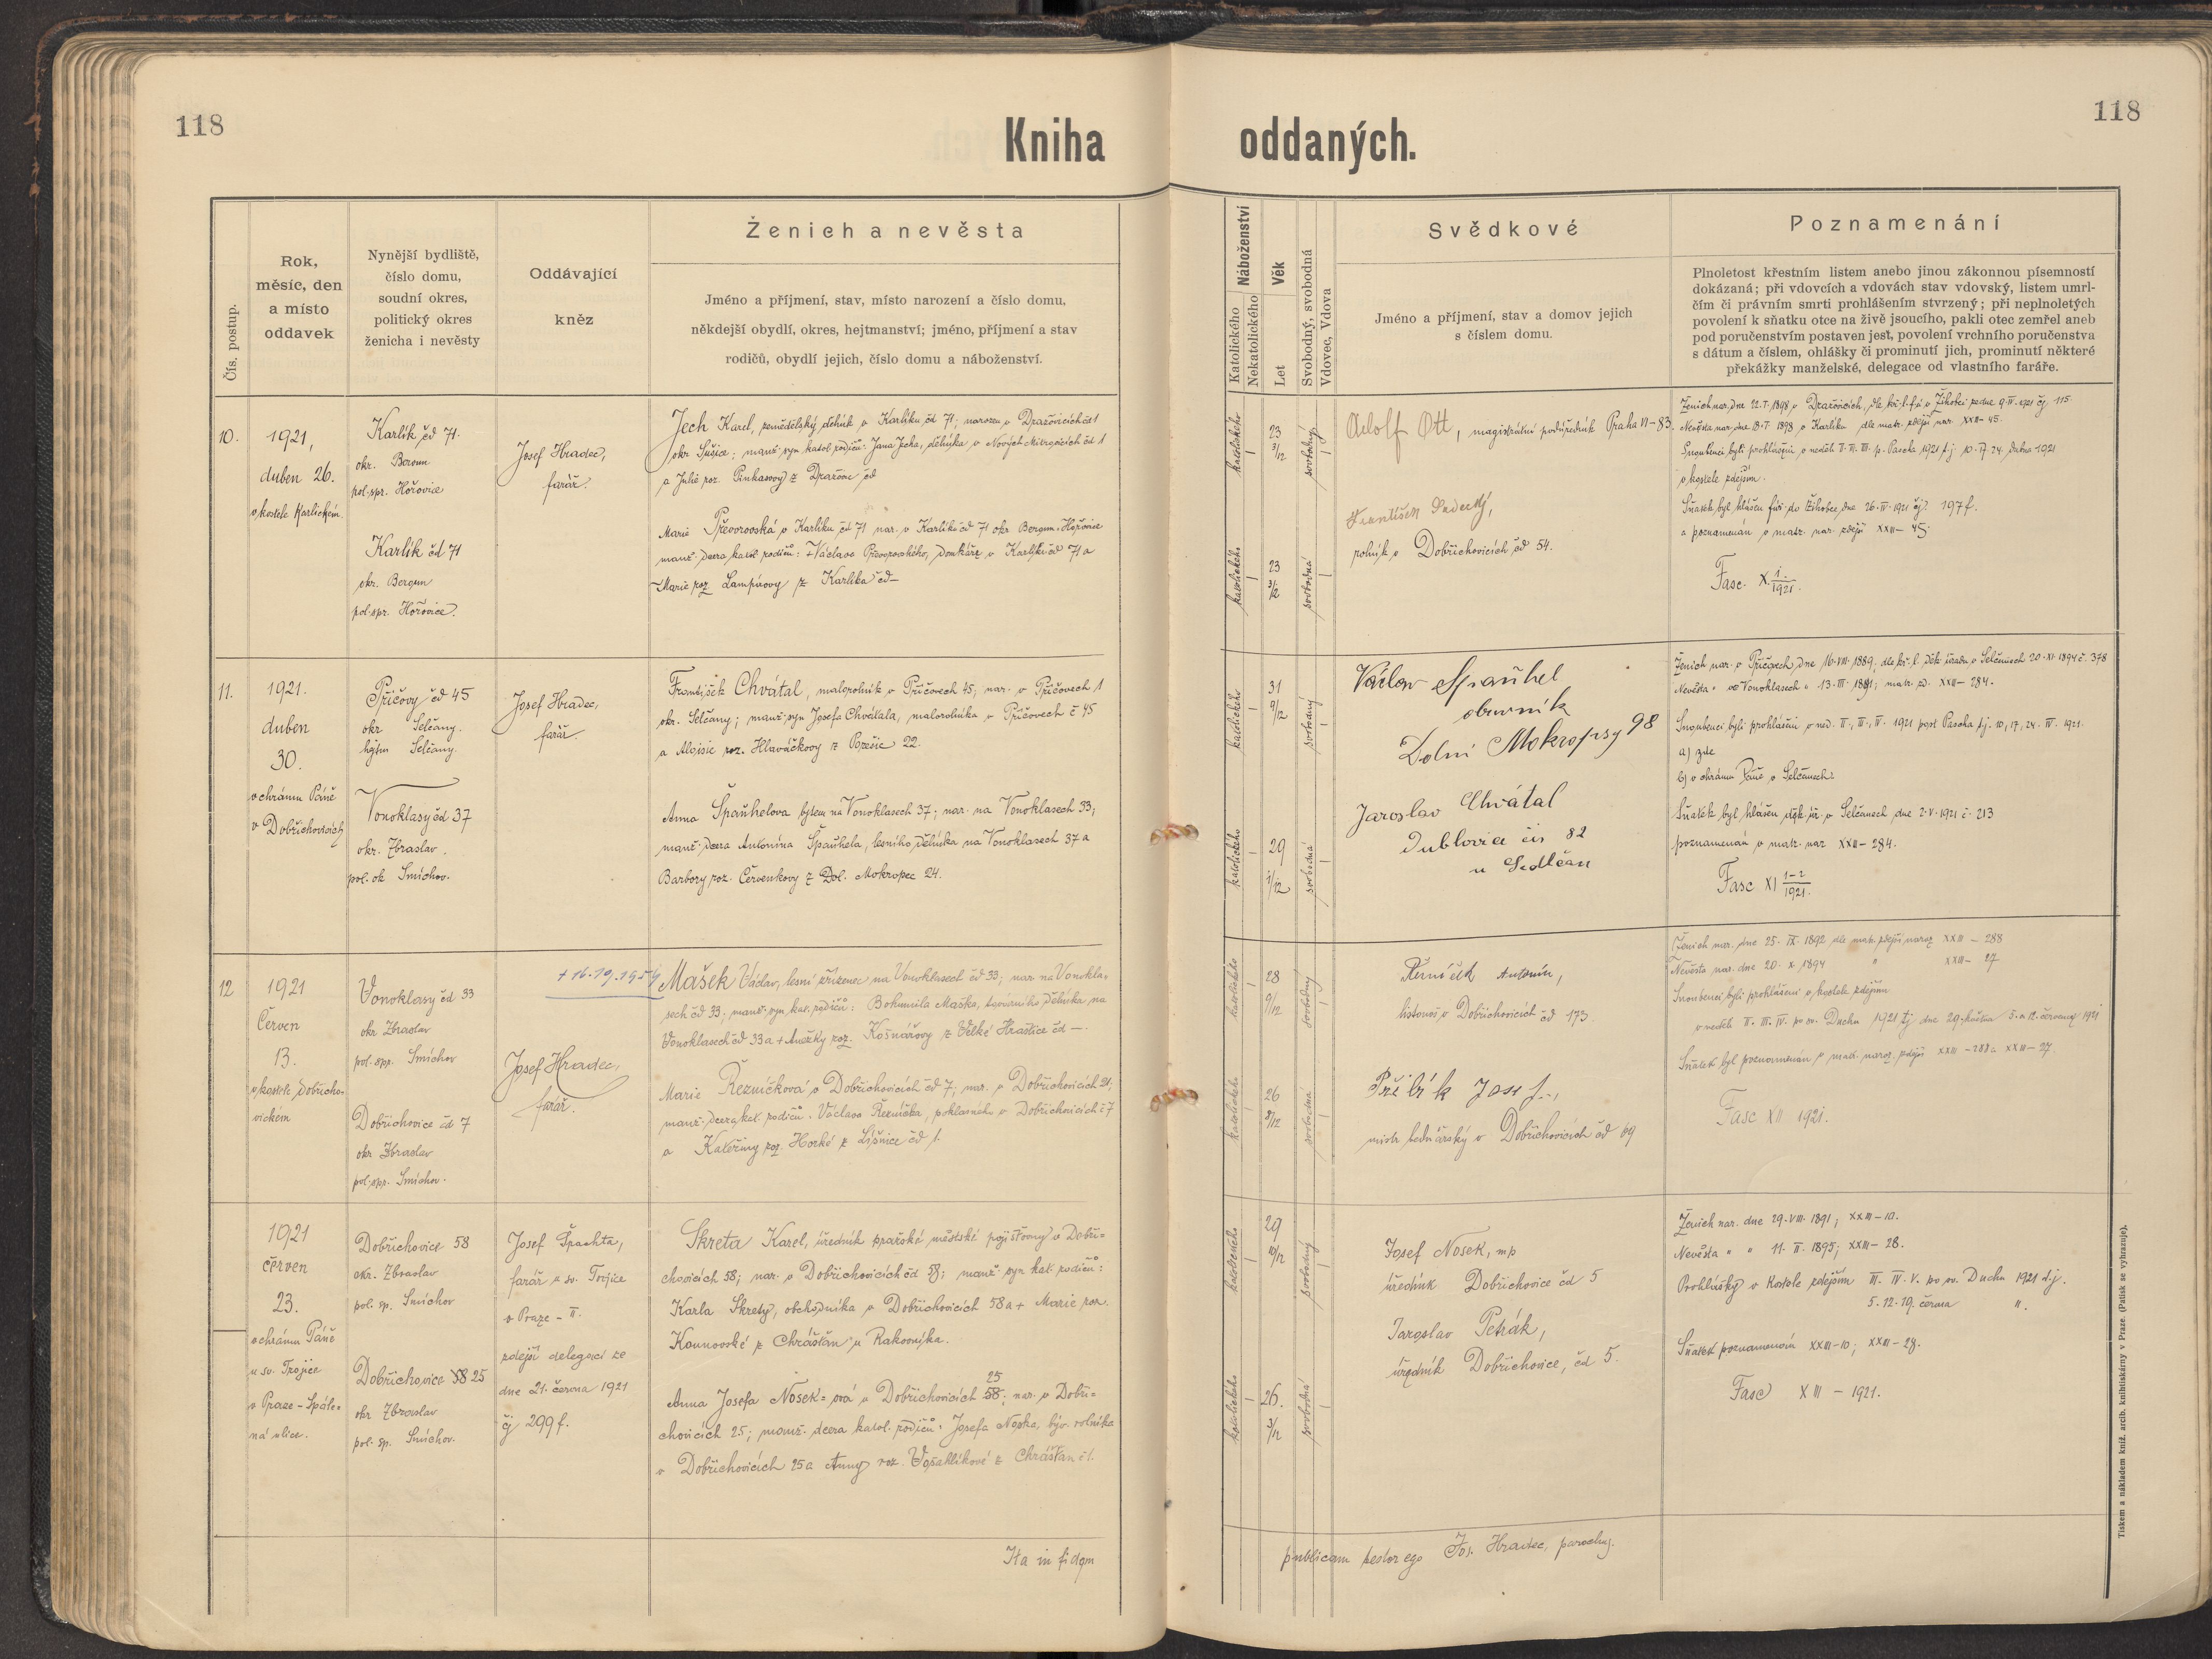 118
Kniha
oddaných.
118
Čís. postup.
Rok,
měsíc, den
a místo
oddavek
Nynější bydliště,
číslo domu,
soudní okres,
politický okres
ženicha i nevěsty
Oddávající
kněz
Ženich a nevěsta
Jméno a příjmení, stav, místo narození a číslo domu,
někdejší obydlí, okres, hejtmanství; jméno, příjmení a stav
rodičů, obydlí jejich, číslo domu a náboženství.
Náboženství
Katolického
Nekatolického
Věk
Let
Svobodný, svobodná
Vdovec, Vdova
Svědkové
Jméno a příjmení, stav a domov jejich
s číslem domu.
Poznamenání
Plnoletost křestním listem anebo jinou zákonnou písemností
dokázaná; při vdovcích a vdovách stav vdovský, listem umrl-
čím či právním smrti prohlášením stvrzený; při neplnoletých
povolení k sňatku otce na živě jsoucího, pakli otec zemřel aneb
pod poručenstvím postaven jest, povolení vrchního poručenstva
s dátum a číslem, ohlášky či prominutí jich, prominutí některé
překážky manželské, delegace od vlastního faráře.
10.
1921,
duben 26.
v kostele Karlickém.
Karlík čd 71.
okr. Beroun
pol. spr. Hořovice
Karlík čd 71
okr. Beroun
pol. spr. Hořovice.
Josef Hradec,
farář.
Jech Karel, zemědělský dělník v Karlíku čd 71; narozen v Dražovicích čd 1
okr Sušice; manž. syn katol. rodičů: Jana Jecha, dělníka v Nových čd 1
a Julie roz. Pinkasovy z Dražovic čd
Marie Převorovská v Karlíku čd 71 nar. v Karlíku čd 71 okr Beroun. Hořovice
manž. dcera katol. rodičů: + Václava Převorovského, domkáře v Karlíku čd 71 a
Marie roz Lampírovy z Karlíka čd —
katolického
katolického
23
3/12
23
3/12
svobodný
svobodná
Adolf Ott, magistrátní podúředník Praha VI – 83.
František
rolník v Dobřichovicích čd 54.
Ženich nar. dne 22. I. 1898 v Dražovicích, dle kř. l. f. ú. v Žihobci ze dne 9. IV. 1921 čj 115.
Nevěsta nar. dne 18. I. 1898 v Karlíku dle matr. zdejší nar. XXIII – 45.
Snoubenci byli prohlášeni v neděli II. III. p. Pascha 1921 t. j. 10. 17. 24. dubna 1921
v kostele zdejším.
Sňatek byl hlášen far. do Žihobec dne 26. IV. 1921 čj. 197 f.
a poznamenán v matr. nar. zdejší XXIII – 45.
Fasc. X. 1/1921.
11.
1921.
duben
30.
v chrámu Páně
v Dobřichovicích
Příčovy čd 45
okr Selčany.
hejtm Selčany.
Vonoklasy čd 37
okr. Zbraslav.
pol. ok Smíchov.
Josef Hradec,
farář.
František Chvátal, malorolník v Příčovech 45; nar. v Příčovech 1
okr. Selčany; manž. syn Josefa Chvátala, malorolníka v Příčovech č 45
a Aloisie roz. Hlaváčkovy z 22.
Anna Špaňhelova bytem na Vonoklasech 37; nar. na Vonoklasech 33;
manž. dcera Antonína Špaňhela, lesního dělníka na Vonoklasech 37 a
Barbory roz. Červenkovy z Dol. Mokropec 24.
katolického
katolického
31
9/12
29
1/12
svobodný
svobodná
Václav Španhel
obuvník
Dolní Mokropsy 98
Jaroslav Chvátal
Dublovice čís 82
u Sedlčan
Ženich nar. v Příčovech dne 16. VIII. 1889. dle kř. l. děk. úřadu v Selčanech 20. XI. 1894 č. 378
Nevěsta " ve Vonoklasech " 13. III. 1891; matr. zd. XXII – 284.
Snoubenci byli prohlášeni v ned. II., III., IV. 1921 post Pascha t. j. 10, 17, 24. IV. 1921.
a) zde
b) v chrámu Páně v Selčanech.
Sňatek byl hlášen děk. úř. v Selčanech dne 2. V. 1921 č. 213
poznamenán v matr. nar. XXII – 284.
Fasc XI 1–2/1921.
12
1921
Červen
13.
v kostele Dobřicho-
vickém
Vonoklasy čd 33
okr Zbraslav
pol. spr. Smíchov
Dobřichovice čd 7
okr Zbraslav
pol. spr. Smíchov.
Josef Hradec,
farář.
Mašek Václav, lesní zřízenec na Vonoklasech čd 33; nar. na Vonokla-
sech čd 33; manž. syn kat. rodičů: Bohumila Maška, továrního dělníka na
Vonoklasech čd 33 a + Anežky roz. Košnářovy z Velké Hraštice čd —.
Marie Řezníčková v Dobřichovicích čd 7; nar. v Dobřichovicích 21;
manž. dcera kat. rodičů: Václava Řezníčka, v Dobřichovicích č 7
a Kateřiny roz. Horké z Líšnice čd 1.
katolického
katolického
28
9/12
26
8/12
svobodný
svobodná
Antonín,
listonoš v Dobřichovicích čd 173.
Přibík Josef,
mistr bednářský v Dobřichovicích čd 69
Ženich nar. dne 25. IX. 1892 dle matr. zdejší naroz XXIII – 288
Nevěsta nar. dne 20. X. 1894 " XXIII – 27
Snoubenci byli prohlášeni v kostele zdejším
v neděli II. III. IV. po sv. Duchu 1921 tj dne 29. května 5. a 12. června 1921
Sňatek byl poznamenán v matr. naroz. zdejší XXIII – 288 a XXIII – 27.
Fasc XII 1921.
1921
červen
23.
v chrámu Páně
u sv. Trojice
v Praze – Spále-
ná ulice.
Dobřichovice 58
okr. Zbraslav
pol. sp. Smíchov
Dobřichovice 58 25
okr Zbraslav
pol. sp. Smíchov.
Josef Špachta,
farář u sv. Trojice
v Praze – II.
zdejší delegací ze
dne 21. června 1921
čj 299 f.
Skreta Karel, úředník pražské městské pojišťovny v Dobři-
chovicích 58; nar. v Dobřichovicích čd 58; manž. syn kat. rodičů:
Karla Skrety, obchodníka v Dobřichovicích 58 a + Marie roz.
Kounovské z Chrášťan u Rakovníka.
25
Anna Josefa Nosek-ová v Dobřichovicích 58; nar. v Dobři-
chovicích 25; manž. dcera katol. rodičů: Josefa Noska, býv. rolníka
v Dobřichovicích 25 a Anny roz. Vosáhlíkové z Chrášťan č 1.
katolického
katolického
29
10/12
26.
3/12
svobodný
svobodná
Josef Nosek, mp
úředník Dobřichovice čd 5
Jaroslav Petrák,
úředník Dobřichovice, čd 5.
Ženich nar. dne 29. VIII. 1891; XXIII – 10.
Nevěsta " " 11. II. 1895; XXIII – 28.
Prohlášky v kostele zdejším III. IV. V. po sv. Duchu 1921 t. j.
5. 12. 19. června ".
Sňatek poznamenán XXIII – 10; XXIII – 28.
Fasc XIII – 1921.
Ita in fidem
publicam testor ego Jos. Hradec, parochus.
Tiskem a nákladem kníž. arcib. knihtiskárny v Praze. (Patisk se vyhrazuje).